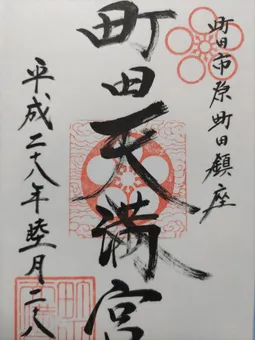 町田市原町田鎮座
町田天満宮
平成二八年睦月二八